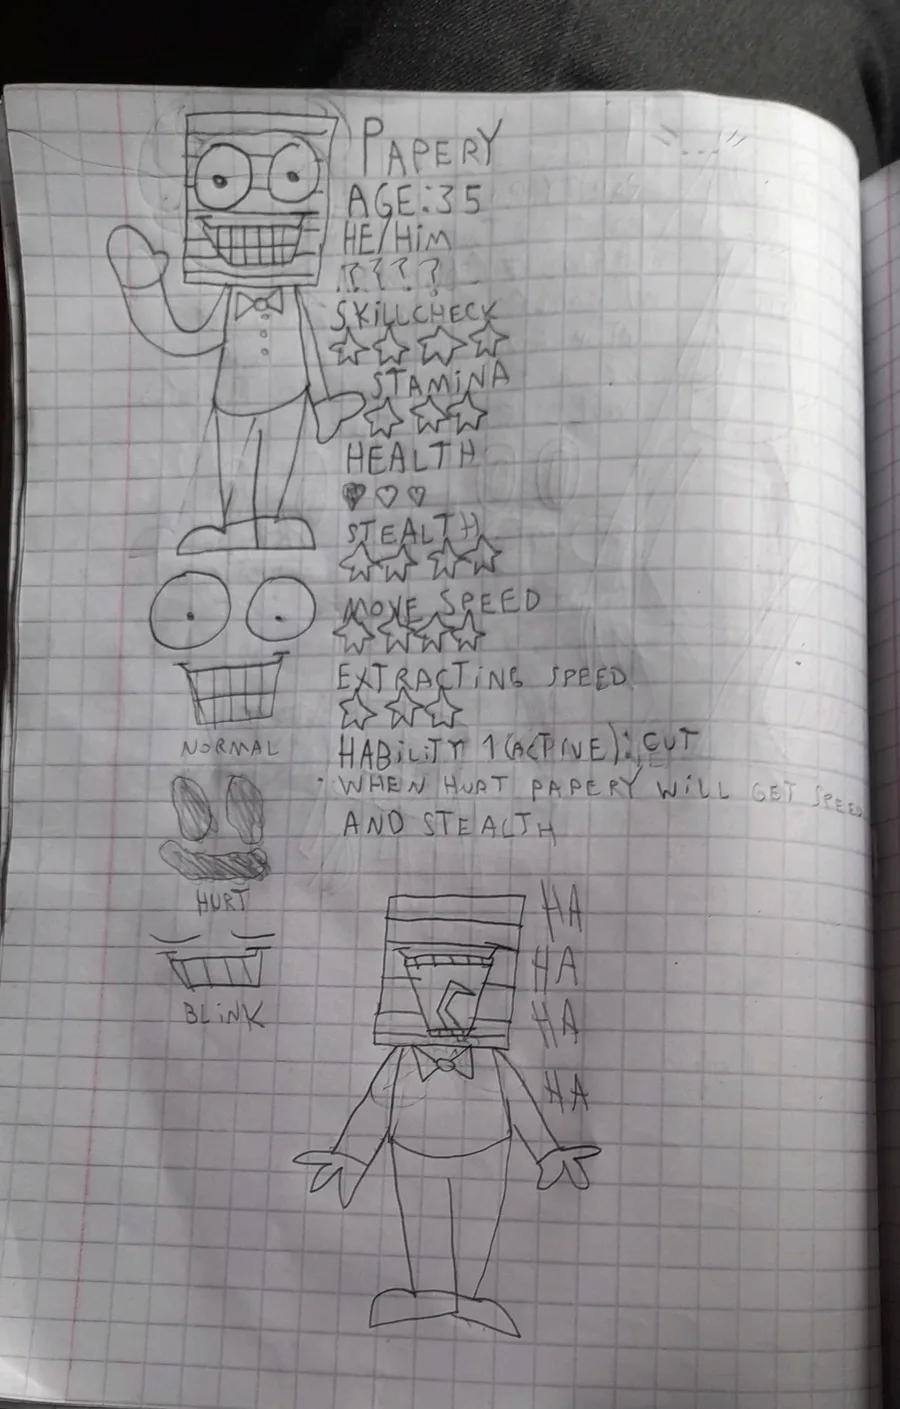 PAPERY
AGE:35
HE/HiM
????
SKiLLCHECK
STAMiNA
HEALTH
STEALTH
MOVE SPEED
EXTRACTiNG SPEED
NORMAL
HABiLiTY 1(ACTIVE): CUT
WHEN HURT PAPERY WiLL GET SPEED
AND STEALTH
HURT
BLiNK
HA
HA
HA
HA